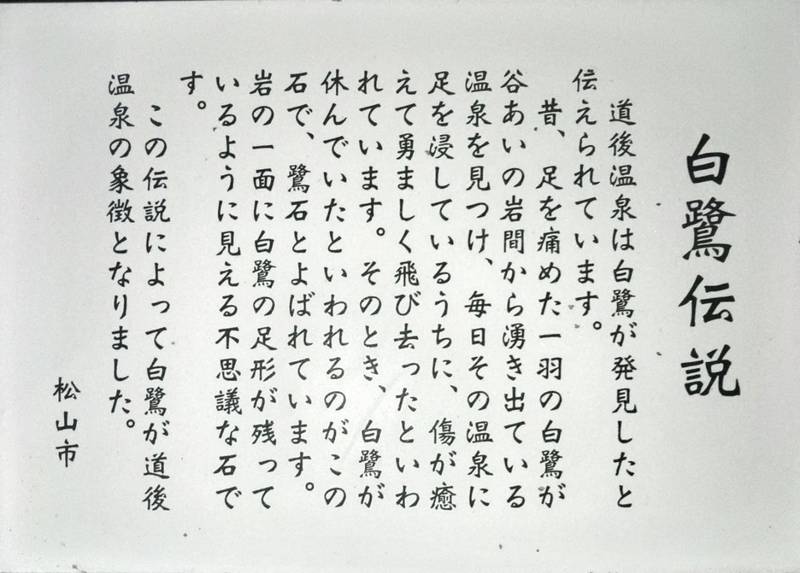 白鷺伝説
道後温泉は白鷺が発見したと
伝えられています。
昔、足を痛めた一羽の白鷺が
谷あいの岩間から湧き出ている
温泉を見つけ、毎日その温泉に
足を浸しているうちに、傷が癒
えて勇ましく飛び去ったといわ
れています。そのとき、白鷺が
休んでいたといわれるのがこの
石で、鷺石とよばれています。
岩の一面に白鷺の足形が残って
いるように見える不思議な石で
す。
この伝説によって白鷺が道後
温泉の象徴となりました。
松山市